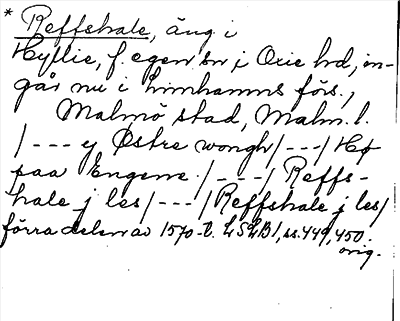 * Reffshale, äng i
Hyllie, f. egen sn j Oxie hd, in-
går nu i Limhamns förs.,
Malmö stad, Malm. l.
/--- ej Østre wongh/---/Hø
paa Engene /---/ Reffs-
hale j les/---/Reffshale j les/
förra delen av 1570-t. LSLB1, ss. 449, 450.
orig.